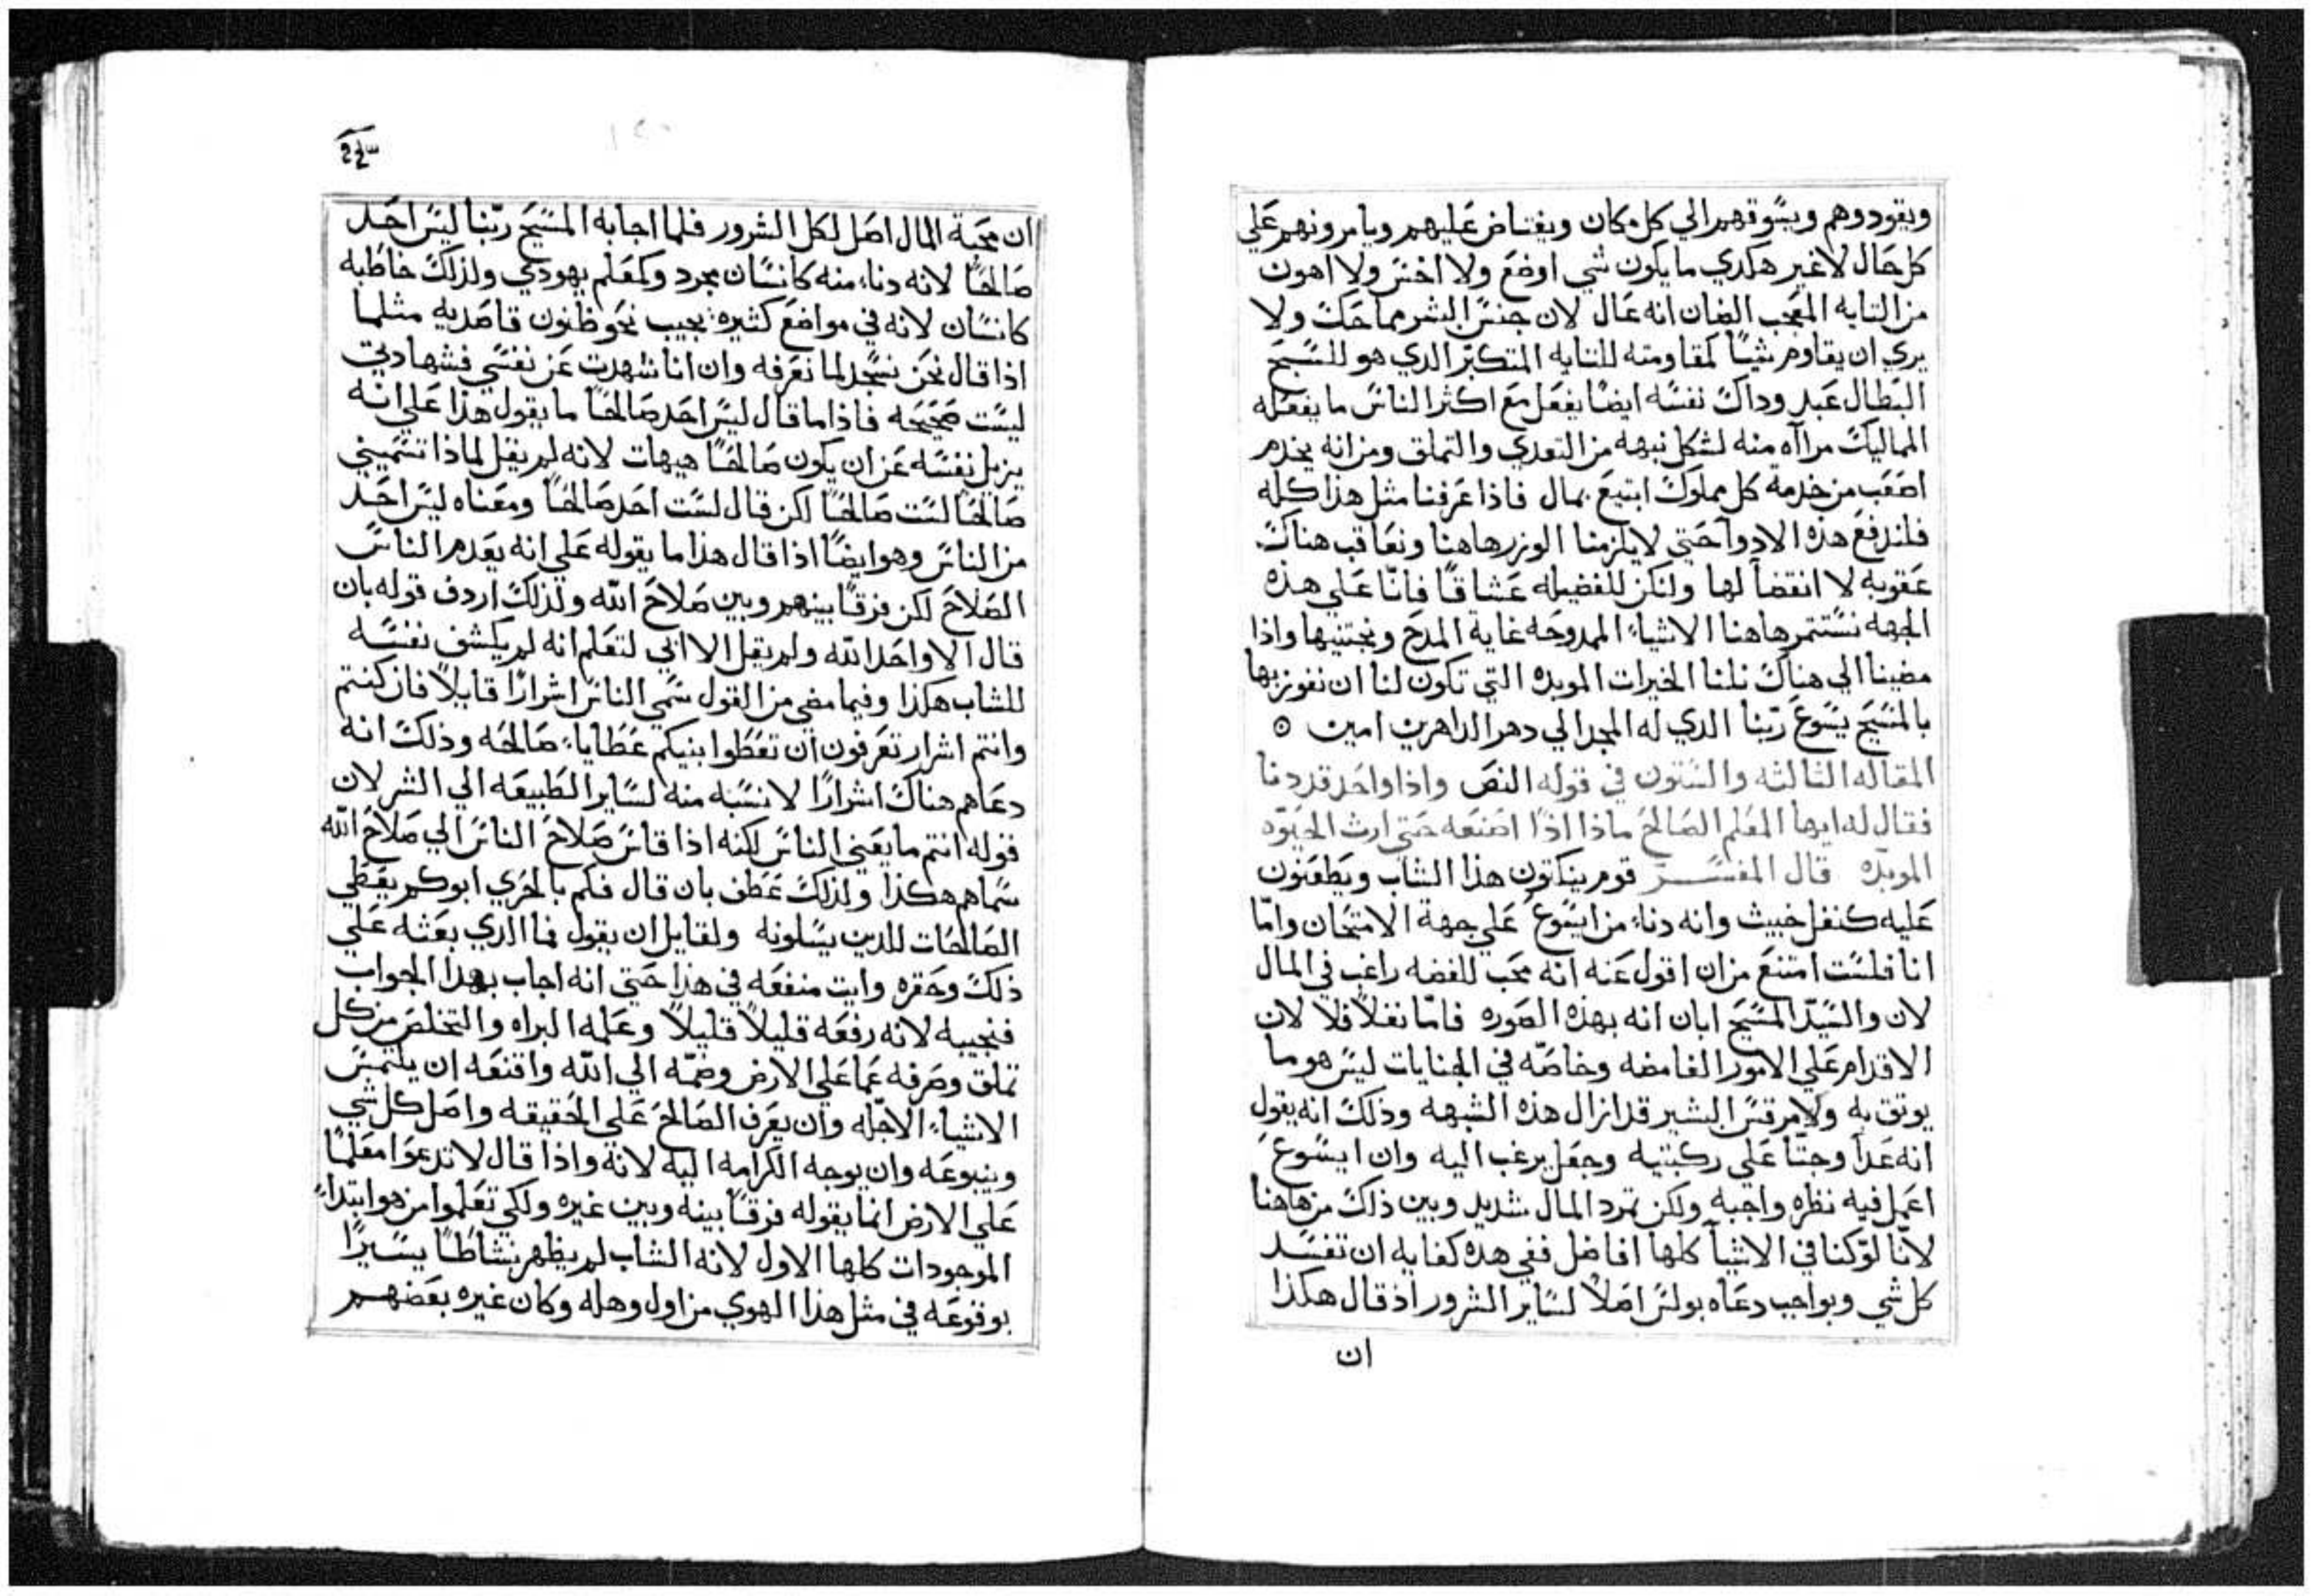 ويقودوهم ويسوقهم الي كل مكان ويغتاض عليهم ويامرونهم علي
كل حال لا غير هكدي ما يكون شي اوضع ولا اخس ولا اهون
من التايه المعجب الضان انه عال لان جنس البشر مماحك ولا
يري ان يقاوم شيًا كمقاومته للتايه المتكبر الدي هو للسبح
البطال عبد وداك نفسه ايضًا يفعل مع اكثر الناس ما يفعله
المماليك مراآه منه لشكل نبهه من التعدي والتملق ومن انه يخدم
اصعب من خدمة كل مملوك ابتيع بمال فاذا عرفنا مثل هذا كله
فلندفع هذه الادوآ حتي لا يلزمنا الوزر هاهنا ونعاقب هناك
عقوبه لا انقضآ لها ولنكن للفضيله عشاقًا فانّا علي هذه
الجهه نستثمر هاهنا الاشياء الممدوحه غاية المدح ونجتنيها واذا
مضينا الي هناك نلنا الخيرات الموبده التي تكون لنا ان نفوز بها
بالمسيح يسوع ربّنا الدي له المجد الي دهر الداهرين امين ⊙
المقاله الثالثه والستون في قوله النص واذا واحد قد دنا
فقال له ايها المعلم الصالح ماذا اذًا اصنعه حتي ارث الحيوّه
الموبدّه قال المفسّر قوم ينكتون هذا الشاب ويطعنون
عليه كنغل خبيث وانه دناء من ايسوع علي جهة الامتحان وامّا
انا فلست امتنع من ان اقول عنه انه محب للفضه راغب في المال
لان والسيّد المسيح ابان انه بهذه الصوره فامّا نغلاً فلا لان
الاقدام علي الامور الغامضه وخاصّه في الجنايات ليس هو ما
يوتق به ولا مرقس البشير قد ازال هذه الشبهه وذلك انه يقول
انه غدآ وجثّا علي ركبتيه وجعل يرغب اليه وان ايسوع
اعمل فيه نظره واجبه ولكن تمرد المال شديد وبين ذلك من هاهنا
لانّا لوّ كنا في الاشيآ كلها افاضل ففي هذه كفايه ان تفسد
كل شي وبواجب دعاه بولس اصلاً لساير الشرور اذ قال هكذا
ان
ان محبة المال اصل لكل الشرور فلما اجابه المسيح ربّنا ليس احد
صالحًا لانه دناء منه كانسان مجرد وكمعلم يهودي ولذلك خاطبه
كانسان لانه في مواضع كثيره يجيب نحو ظنون قاصديه مثلما
اذا قال نحن نسجد لما نعرفه وان انا شهدت عن نفسي فشهادتي
ليست صحيحه فاذا ما قال ليس احد صالحًا ما يقول هذا علي انه
يزيل نفسه عن ان يكون صالحًا هيهات لانه لم يقل لماذا تسميني
صالحًا لست صالحًا لكن قال لست احد صالحًا ومعناه ليس احد
من الناس وهو ايضًا اذا قال هذا ما يقوله علي انه يعدم الناس
الصلاح لكن فرقًا بينهم وبين صلاح الله ولذلك اردف قوله بان
قال الا واحد الله ولم يقل الا ابي لتعلم انه لم يكشف نفسه
للشاب هكذا وفيما مضي من القول سمي الناس اشرارًا قايلاً فان كنتم
وانتم اشرار تعرفون ان تعطوا بنيكم عطاياء صالحه وذلك انه
دعاهم هناك اشرارًا لا نسبه منه لساير الطبيعه الي الشر لان
قوله انتم ما يعني الناس لكنه اذا قاس صلاح الناس الي صلاح الله
سماهم هكذا ولذلك عطف بان قال فكم بالحري ابوكم يعطي
الصالحات للدين يسلونه ولقايل ان يقول فما الدي بعثه علي
ذلك وحقره وايت منفعه في هذا حتي انه اجاب بهدا الجواب
فنجيبه لانه رفعه قليلاً قليلاً وعلمه البراه والتخلص من كل
تملق وصرفه عما علي الارض وضمّه الي الله واقنعه ان يلتمس
الاشياء الاجلّه وان يعرف الصالح علي الحقيقه واصل كل شي
وينبوعه وان يوجه الكرامه اليه لانه واذا قال لا تدعوا معلمًا
علي الارض انما يقوله فرقًا بينه وبين غيره ولكي تعلموا من هو ابتداء
الموجودات كلها الاول لانه الشاب لم يظهر نشاطًا يسيرًا
بوقوعه في مثل هذا الهوي من اول وهله وكان غيره بعضهم